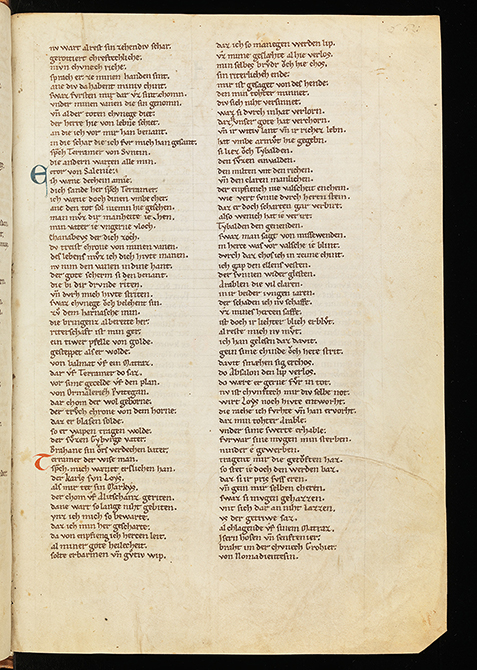 nv wart alrest sin zehendiv schar.
gerottiert chreftechliche;
mŷn chvnech riche.
sprach er; ze minen handen sint.
ane div da habent miniv chint.
swaz fvrsten mir dar vz sint chomn.
vnder minen vanen die sin genomn.
vñ alder toten chvnege diet;
der herre hie von lebne schiet.
an die ich vor mir han benant.
in die schar die ich fvr mich han gesant.
sprach Terramer von
die andern warten alle min.
Ector von Salenie;
ich
dich sande her sprach Terramer;
ich warne doch dinen vmbecher.
ane den tot sol niemen gesehen.
man mvz dir manheite iehen.
min vater
thanabevs der dich zoch.
dv treist chrone von minen vanen.
des lebens mvz ich dich hivte manen.
nv nim den vanen in dine hant.
der gote scherm si den benant.
die bi dir drvnde riten.
vñ dvrch mich hivte striten.
swaz chvnege bi sin.
zv dem harnasche min.
die bringent alberete her;
riterschaft ist min ger;
ein tiwer pfelle von golde.
gesteppet als er wolde.
von palmat vf ein matraz.
dar vf Terramer do saz.
vor sime gecelde vf den plan.
von
dar chom der wol geborne.
der trvch chrone von dem horne;
daz er blasen solde.
so er wapen tragen wolde.
der svzen Gybvrge vater;
Brahane sin ors verdechen bater;
Terramer der wise man.
sprach mich wariet erslichen han.
der karls svn Loys.
als mir tet sin Markys.
der chom vf Alitschanz geriten.
dane wart so lange niht gebiten.
vnz ich mich so bewarte.
daz ich min her gescharte;
da von enpfieng ich herzen leit.
al miner gote heilecheit.
solte erbarmen vñ gvtiv wip.
daz ich so manegen werden lip.
vz mime geslæhte al hie verlos.
min selbes brvdr
sin riterlicheh ende;
mir ist gesaget von des hende.
den min tohter minnet.
div sich niht versinnet.
waz si dvrch in hat verlorn.
daz vnser gote hat verchorn.
vñ ir witiv lant vñ ir richez lebn.
hat vmbe armvt hie gegebn.
si liez och Tybalden.
den svzen einvalden.
den milten vnde den richen.
vñ den claren manlichen.
der enpfiench nie valscheit enchein.
wie verr svnne dvrch herten stein.
daz er doch scharten gar verbirt.
also wenich hat
Tybalden den genenden.
swaz man sagt von missewenden.
in herze was vor valsche ie blint.
dvrch daz chos ich in zeime chint.
ich gap den ellens vesten.
der svnnen wider glesten.
Arablen die vil claren.
mir beider ivngen iaren.
der schaden ich nv schaffe.
vz mines herzen saffe.
ist doch ir liehter blich erblvt.
alrest mich nv mvt.
ich han gelesen daz davit.
gein sime chinde och hete strit.
davit
do Absalon den lip verlos.
do wære er gerne fvr in tot.
nv ist chvnftech mir div selbe not.
wirt Loys noch hivte entworht.
die rache ich fvrhte vñ han ervorht.
daz min tohter Arable.
vnder sime swerte erhable.
fvr war sine mvgen min sterben.
ninder e gewerben.
tragent mir die getovften haz.
so stet iz doch den werden baz.
daz si ir pris svs eren.
vñ gein mir selben cheren.
swaz si mvgen geharzzen.
vnt sich dar an niht lazzen.
vf der getriwe saz.
al chlagende vf sinem Matraz.
Isern hosen vñ senftenier;
braht im der chvnech Grohier.
von Nomadientesin.